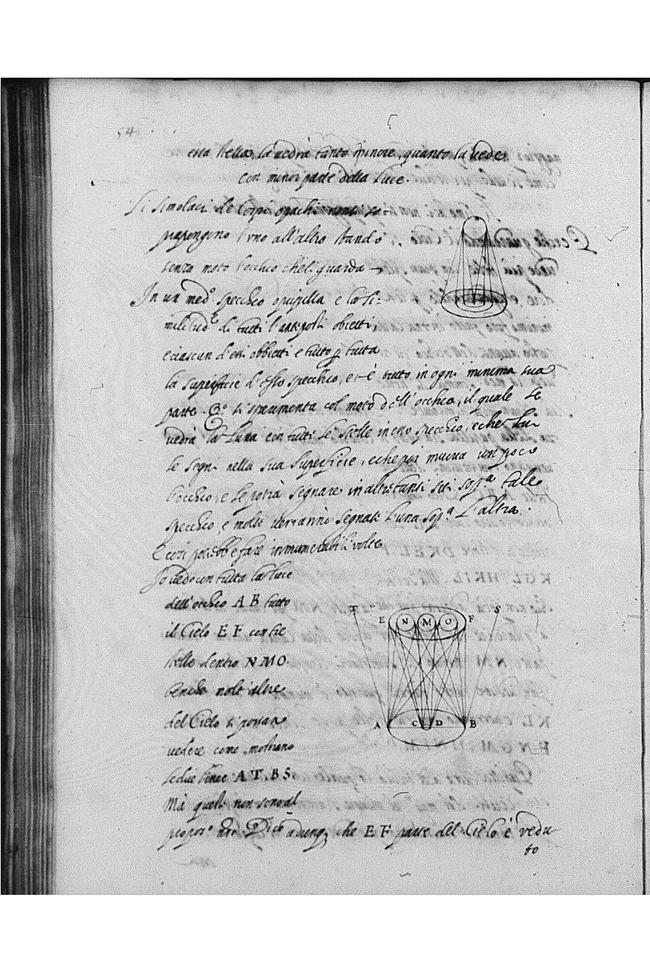 54
essa stella, la uedrà tanto minore, quanto la uede
con minor parte della luce.
Li simolacri de Corpi opachi non si
prapongono l'uno all'altro stando
senza moto l'occhio che li guarda
In un med.º specchio o pupilla è la si-
militud.e di tutti l'antiposti obietti,
e ciascun d'essi obbietti è tutto p tutta
la superficie d'esso specchio, et è tutto in ogni minima sua
parte. si sperimenta col moto dell'occhio, il quale se
uedrà la Luna con tutte le stelle in esso specchio, e che lui
le segni nella sua superficie, e che poi muoua un poco
l'occhio, e le potrà segnare in altri tanti siti sop.ª tale
specchio, e molte uerranno segnate l'una sop.ª l'altra.
E così potrebbe fare innumerabili uolte
Io uedo con tutta la luce
dell'occhio A B tutto
il Cielo E F con tre
stelle dentro N M O.
benche molt'altre
del Cielo si possano
uedere come mostrano
le due linee A T, B S.
Mà quelle non sono al
propos.º nro Dico adunq; che E F parte del Cielo è uedu
to
T S
E N M O F
A C D B